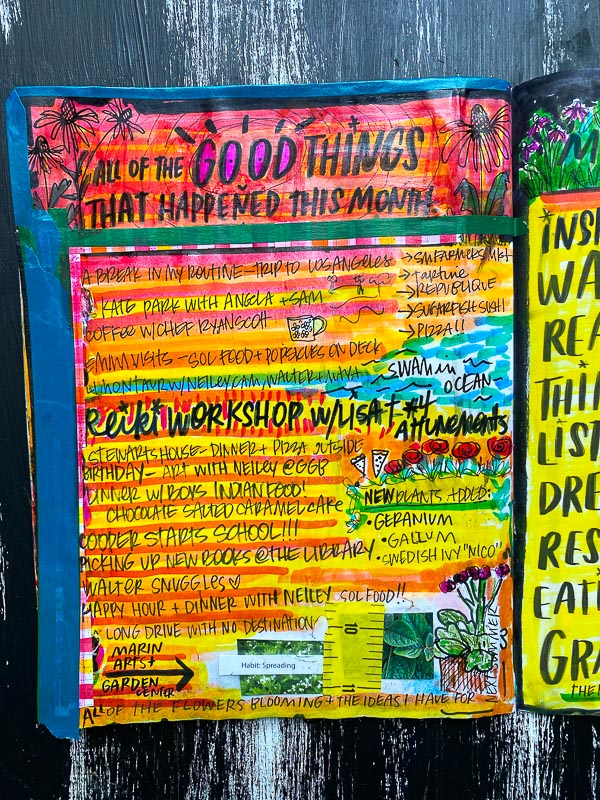 ALL OF THE GOOD THINGS
THAT HAPPENED THIS MONTH!
A BREAK IN MY ROUTINE - TRIP TO LOS ANGELES
→ SM FARMERS MKT
→ TARTINE
→ REPUBLIQUE
→ SUGARFISH SUSHI
→ PIZZA!!
KATE PARK WITH ANGELA + SAM
COFFEE W/CHEF RYAN SCOTT
EMMM VISITS - SOL FOOD + POPSICLES ON DECK
W/NELLEY, CAM, WALTER + MAYA
SWAM IN
OCEAN
REIKI WORKSHOP W/LISA + #4
ATTUNEMENTS
STEWARTS HOUSE - DINNER + PIZZA OUTSIDE
BIRTHDAY - ART WITH NELLEY @ GGB
DINNER W/ BOYS INDIAN FOOD!
CHOCOLATE SALTED CARAMEL CAKE
COOPER STARTS SCHOOL!!!
PICKING UP NEW BOOKS @ THE LIBRARY
WALTER SNUGGLES ♡
HAPPY HOUR + DINNER WITH NELLEY SOL FOOD!!
LONG DRIVE WITH NO DESTINATION
NEW PLANTS ADDED:
• GERANIUM
• GALLUM
• SWEDISH IVY "NICO"
MARIN
ARTS +
GARDEN
CENTER
Habit: Spreading
10
11
ALL OF THE FLOWERS BLOOMING + THE IDEAS I HAVE FOR
SUMMER
INS
WA
REA
THI
LIST
DRE
RES
EATI
GRA
THE